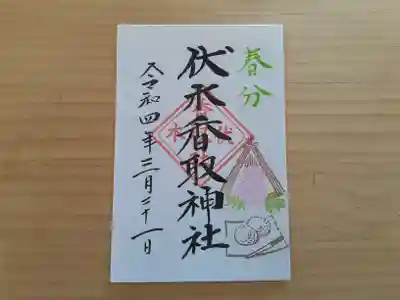 春分
伏木香取神社
令和四年三月二十一日